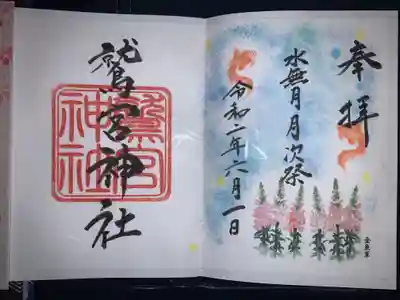 奉拝
水無月月次祭
令和二年六月一日
金魚草
鷲宮神社
鷲宮神社